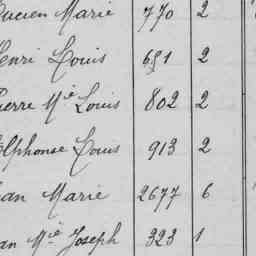 Lucien Marie 770 2
Henri Louis 651 2
Pierre Mie Louis 802 2
Alphonse Louis 913 2
Jean Marie 2677 6
Jean Mie Joseph 323 1